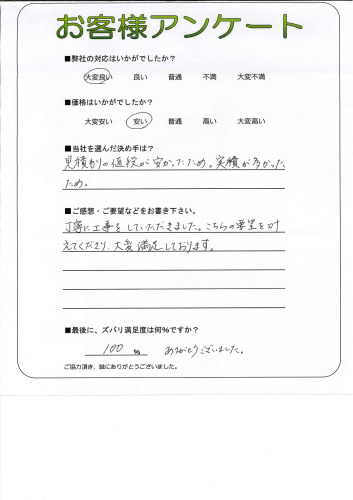 お客様アンケート
■弊社の対応はいかがでしたか?
大変良い 良い 普通 不満 大変不満
■価格はいかがでしたか?
大変安い 安い 普通 高い 大変高い
■当社を選んだ決め手は?
見積りの値段が安かったため。実績が多かった
ため。
■ご感想・ご要望などをお書き下さい。
丁寧に工事をしていただきました。こちらの要望を叶
えてくださり、大変満足しております。
■最後に、ズバリ満足度は何%ですか?
100 % ありがとうございました。
ご協力頂き、誠にありがとうございました。